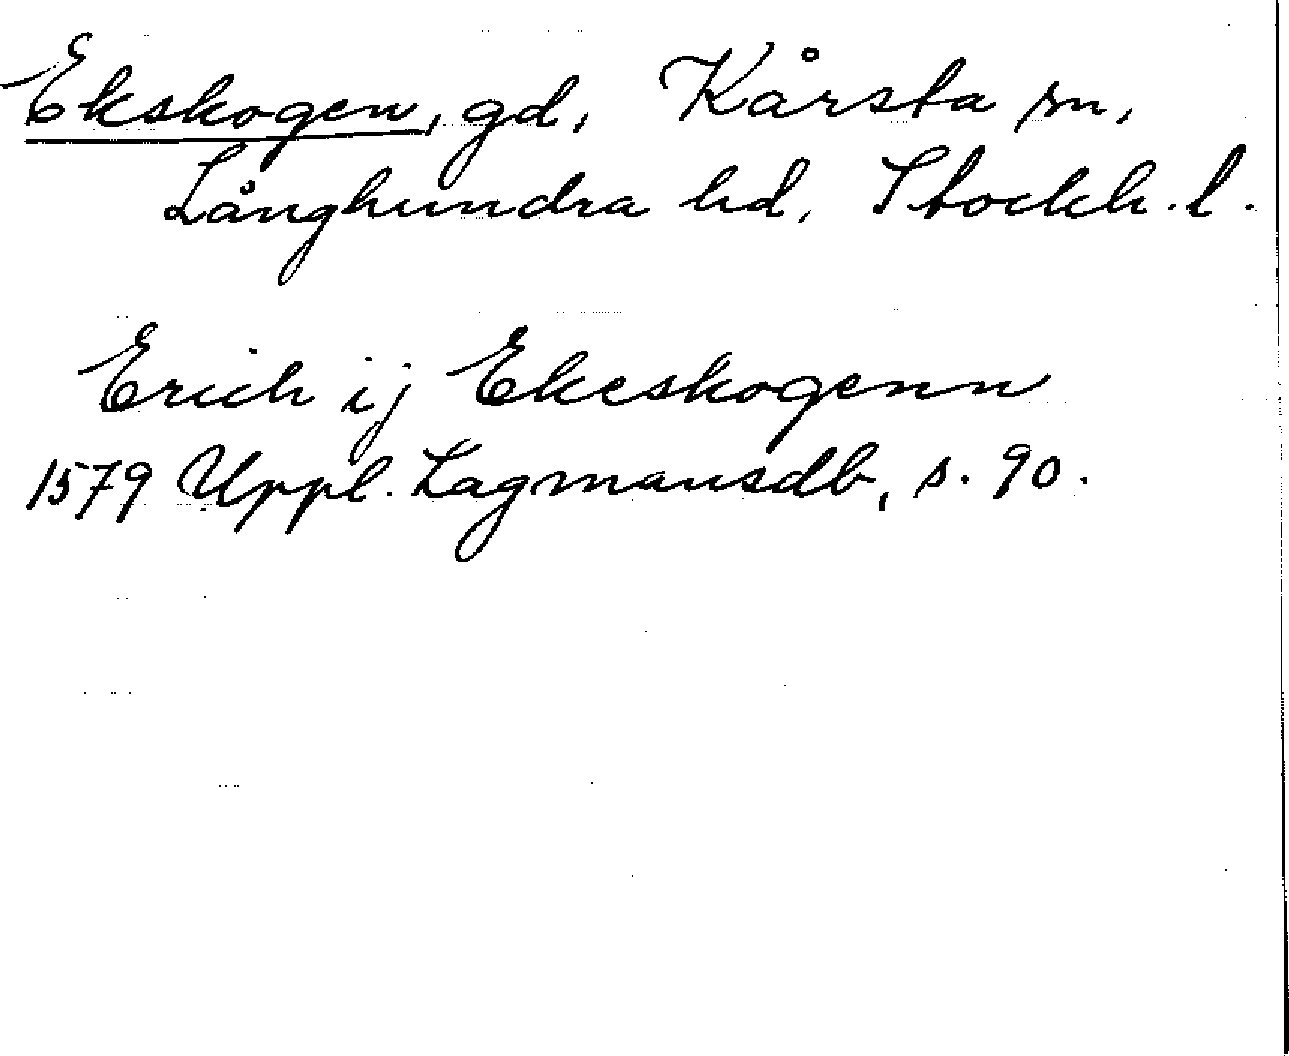 Ekskogen, gd, Kårsta sn,
Långhundra hd, Stockh. l.
Erich ij Ekeskogenn
1579 Uppl. Lagmansdb, s. 90.